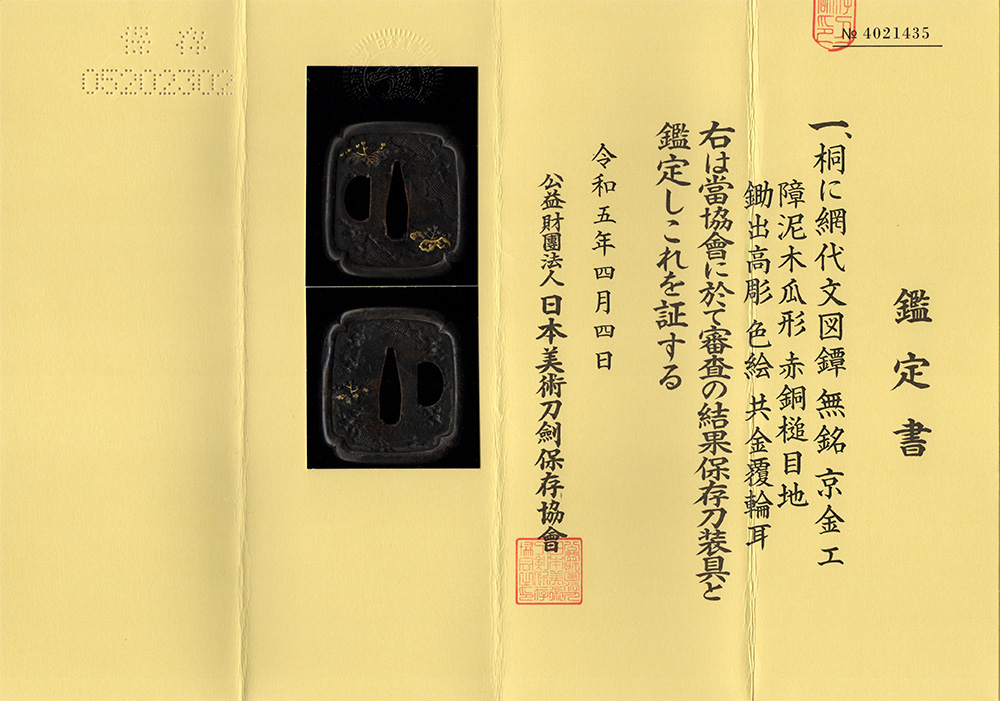 № 4021435
鑑定書
一、桐に網代文図鐔 無銘 京金工
障泥木瓜形 赤銅槌目地
鋤出高彫 色絵 共金覆輪耳
右は當協會に於て審査の結果保存刀装具と
鑑定しこれを証する
令和五年四月四日
公益財團法人 日本美術刀劍保存協會
保存
05202302